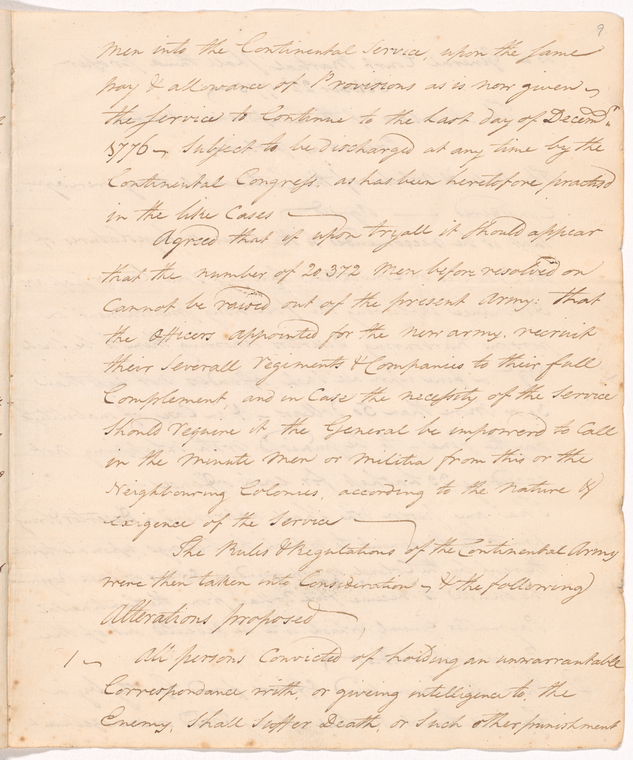 9
men into the Continental Service, upon the same
pay & allowance of Provisions as is now given,
the Service to Continue to the last day of Decemr.
1776 Subject to be discharged at any time by the
Continental Congress. as has been heretofore practised
in the like Cases
Agreed that if upon tryall it should appear
that the number of 20,372 Men before resolved on
Cannot be raised out of the present Army: that
the Officers appointed for the new army, recruit
their severall regiments & Companies to their full
Complement and in Case the necessity of the Service
should require it the General be impowerd to Call
in the minute Men or militia from this or the
Neighbouring Colonies, according to the nature &
exigence of the Service
The Rules & Regulations of the Continental Army
were then taken into Consideration, & the following
Alterations proposed
1 All persons Convicted of holding an unwarrantable
Correspondance with, or giving intelligence to, the
Enemy, Shall Suffer Death, or Such other punishment